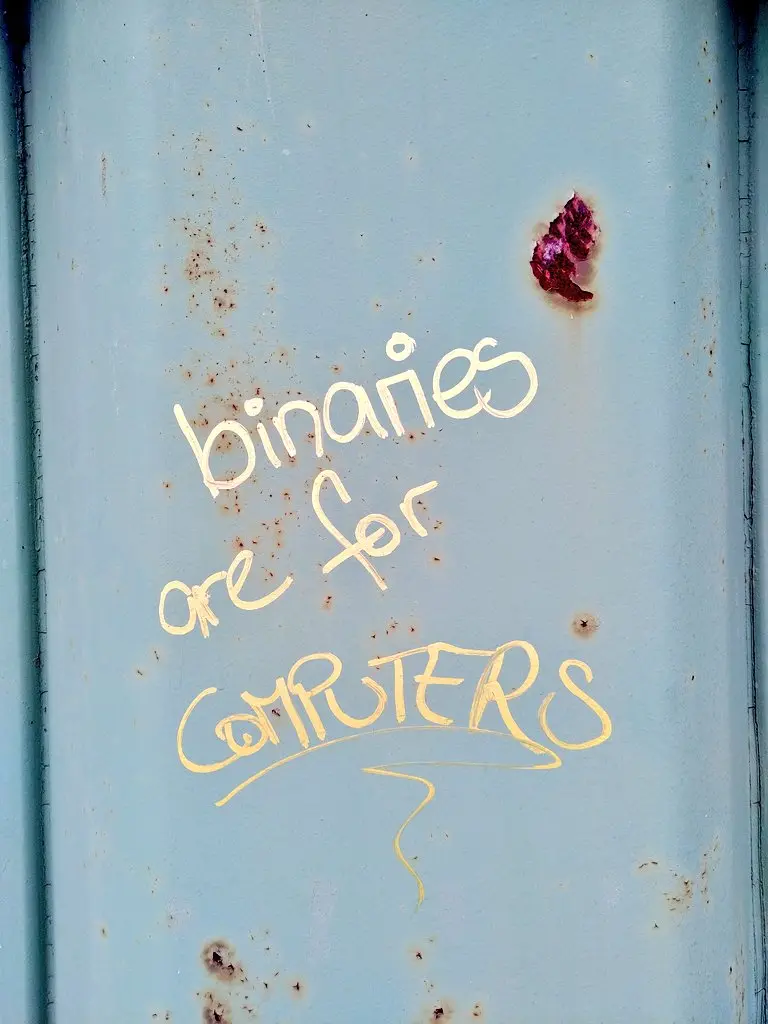 binaries
are for
COMPUTERS